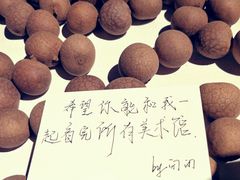 希望你能和我一
起看完所有美术馆.
by 闪闪